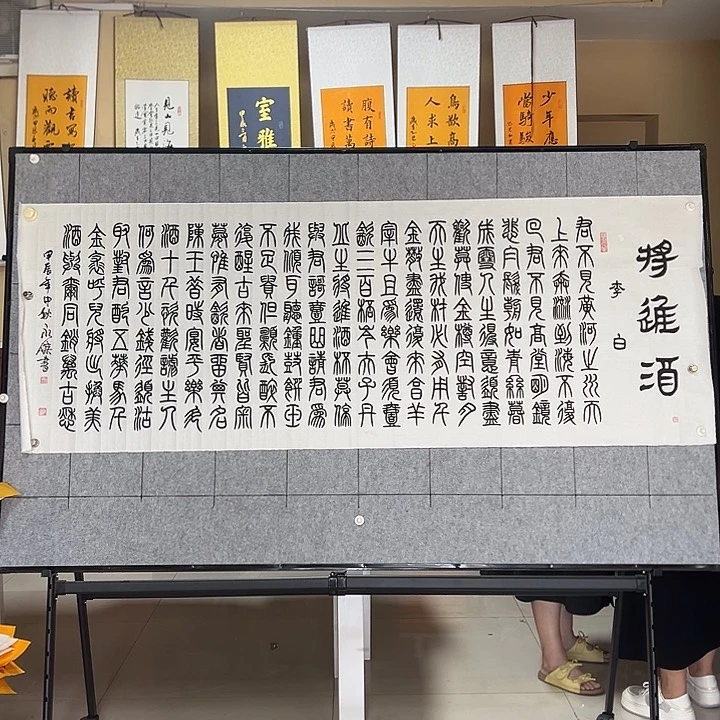 讀書寫
見山見
室雅
腹有詩
讀書萬
鳥欲高
人求上
少年應
當騎駿
將進酒
李白
君不見黃河之水天
上來奔流到海不復
回君不見高堂明鏡
悲白髮朝如青絲暮
成雪人生得意須盡
歡莫使金樽空對月
天生我材必有用千
金散盡還復來烹羊
宰牛且為樂會須壹
飲三百杯岑夫子丹
丘生將進酒杯莫停
與君歌壹曲請君為
我傾耳聽鐘鼓饌玉
不足貴但願長醉不
復醒古來聖賢皆寂
寞惟有飲者留其名
陳王昔時宴平樂斗
酒十千恣歡謔主人
何為言少錢徑須沽
取對君酌五花馬千
金裘呼兒將出換美
酒與爾同銷萬古愁
甲辰年中秋永書